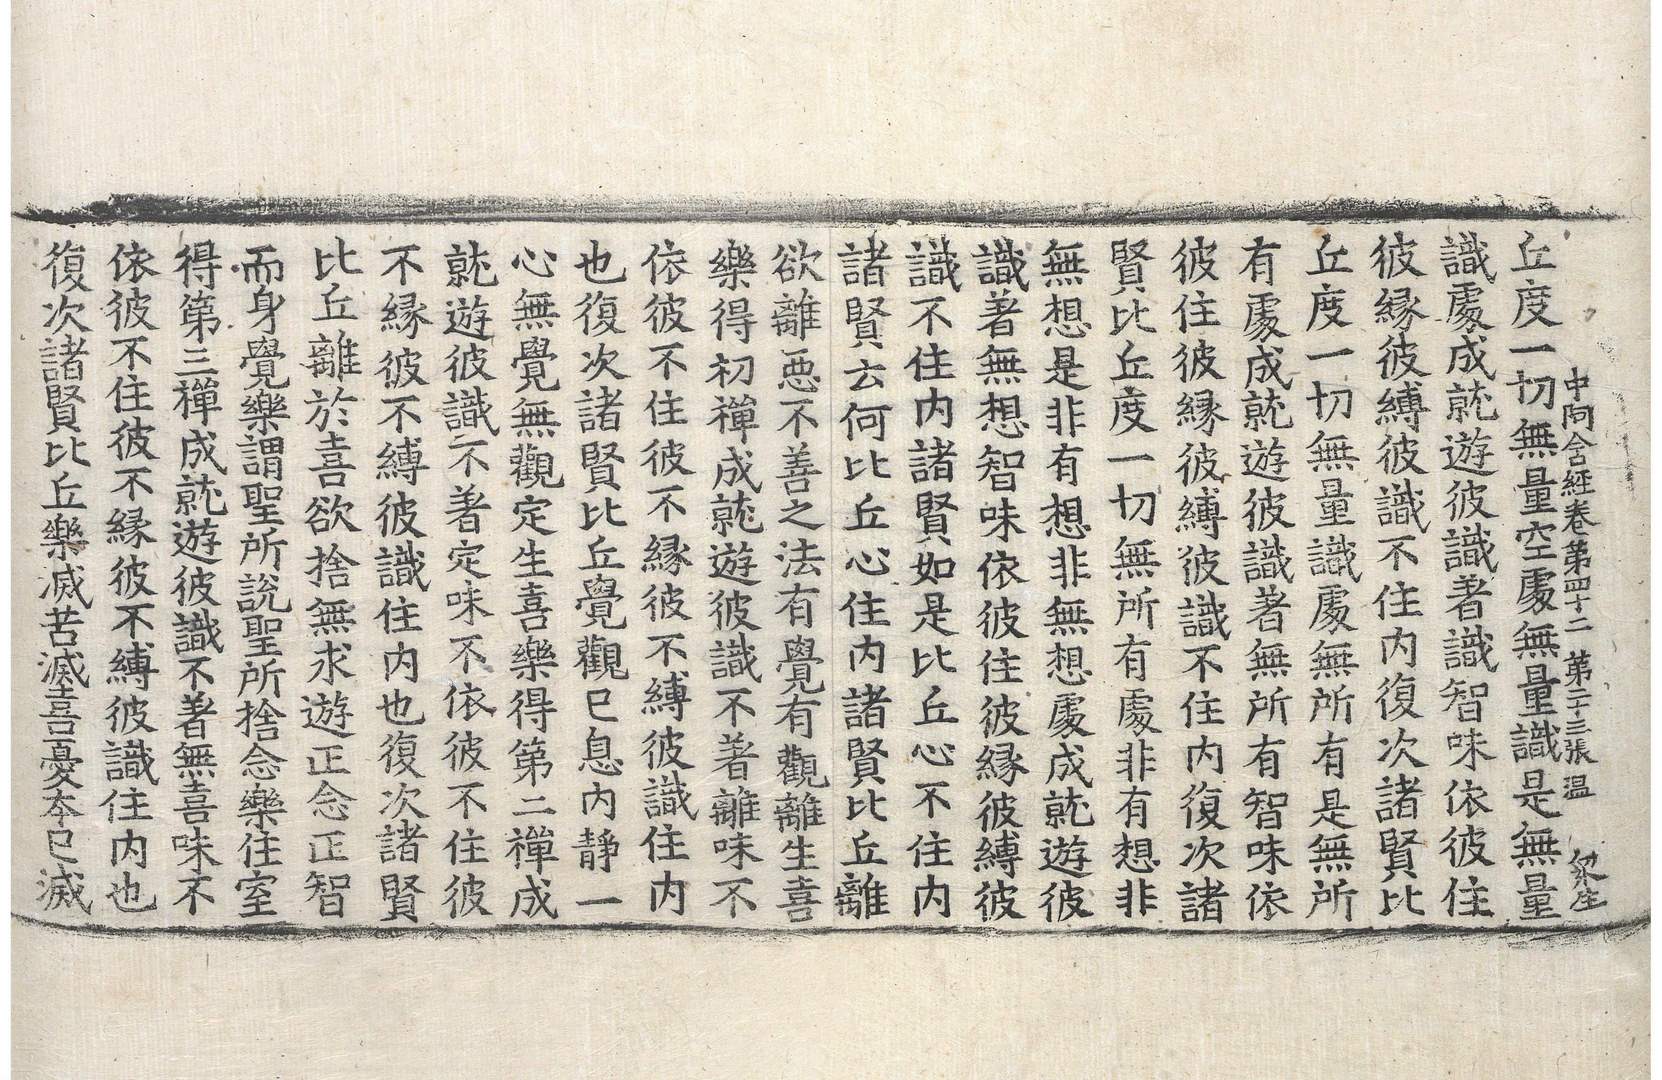 中阿含經卷第四十二 第二十三張 温
丘度一切無量空處無量識是無量
識處成就遊彼識著識智味依彼住
彼縁彼縛彼識不住内復次諸賢比
丘度一切無量識處無所有是無所
有處成就遊彼識著無所有智味依
彼住彼縁彼縛彼識不住内復次諸
賢比丘度一切無所有處非有想非
無想是非有想非無想處成就遊彼
識著無想智味依彼住彼縁彼縛彼
識不住内諸賢如是比丘心不住内
諸賢云何比丘心住内諸賢比丘離
欲離惡不善之法有覺有觀離生喜
樂得初禪成就遊彼識不著離味不
依彼不住彼不縁彼不縛彼識住内
也復次諸賢比丘覺觀已息内靜一
心無覺無觀定生喜樂得第二禪成
就遊彼識不著定味不依彼不住彼
不縁彼不縛彼識住内也復次諸賢
比丘離於喜欲捨無求遊正念正智
而身覺樂謂聖所說聖所捨念樂住室
得第三禪成就遊彼識不著無喜味不
依彼不住彼不縁彼不縛彼識住内也
復次諸賢比丘樂滅苦滅喜憂本已滅